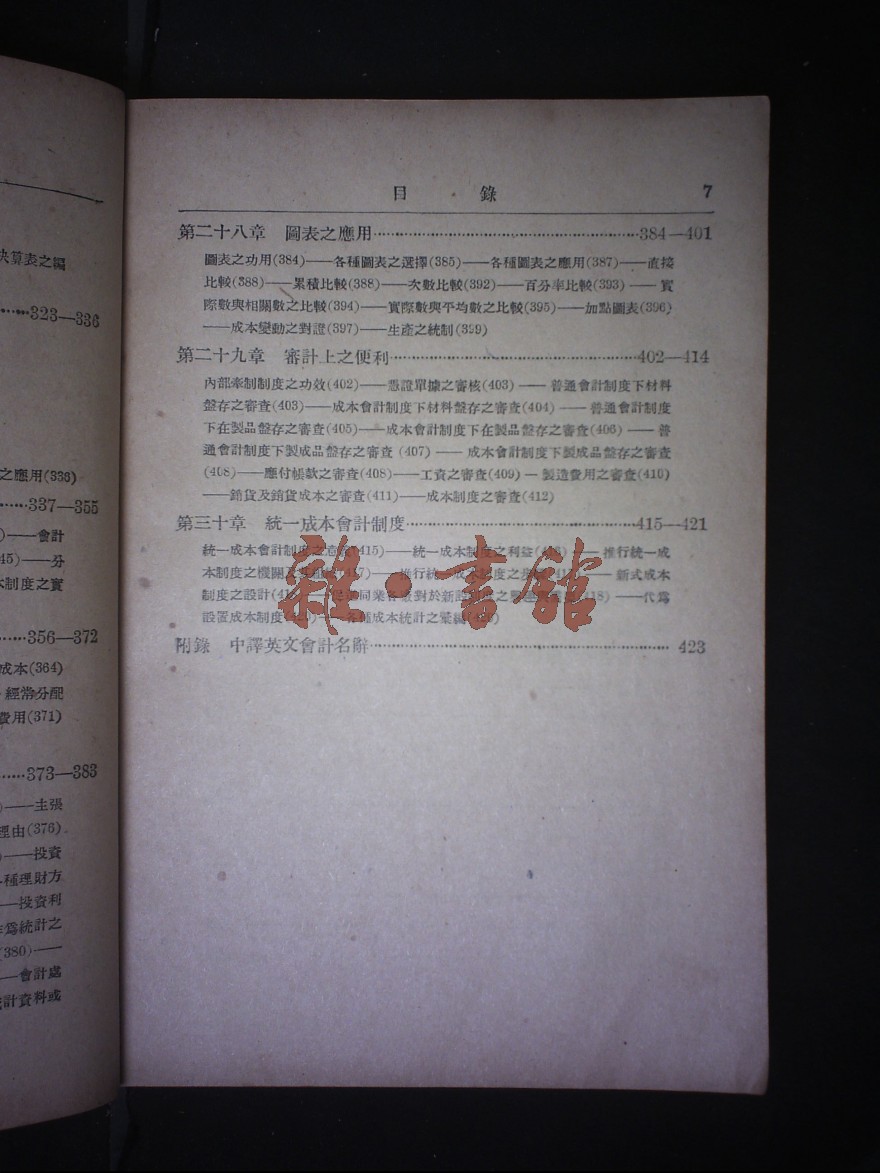 決算表之編
323—336
之應用(336)
337—355
會計
45)——分
本制度之實
356—372
成本(364)
經常分配
費用(371)
373—383
——主張
理由(376)
——投資
種理財方
——投資利
作爲統計之
(380)——
——會計處
計資料或
目 錄 7
第二十八章 圖表之應用……384—401
圖表之功用(384)——各種圖表之選擇(385)——各種圖表之應用(387)——直接
比較(388)——累積比較(388)——次數比較(392)——百分率比較(393)——實
際數與相關數之比較(394)——實際數與平均數之比較(395)——加點圖表(396)
——成本變動之對證(397)——生產之統制(399)
第二十九章 審計上之便利……402—414
內部牽制制度之功效(402)——憑證單據之審核(403)——普通會計制度下材料
盤存之審查(403)——成本會計制度下材料盤存之審查(404)——普通會計制度
下在製品盤存之審查(405)——成本會計制度下在製品盤存之審查(406)——普
通會計制度下製成品盤存之審查(407)——成本會計制度下製成品盤存之審查
(408)——應付帳款之審查(408)——工資之審查(409)—製造費用之審查(410)
——銷貨及銷貨成本之審查(411)——成本制度之審查(412)
第三十章 統一成本會計制度……415—421
統一成本會計制度之意義(415)——統一成本制度之利益——推行統一成
本制度之機關——推行統一成本制度之步——新式成本
制度之設計——同業各眾對於新設制度之——代爲
設置成本制度——各種成本統計之彙編
附錄 中譯英文會計名辭……423
雜·書館